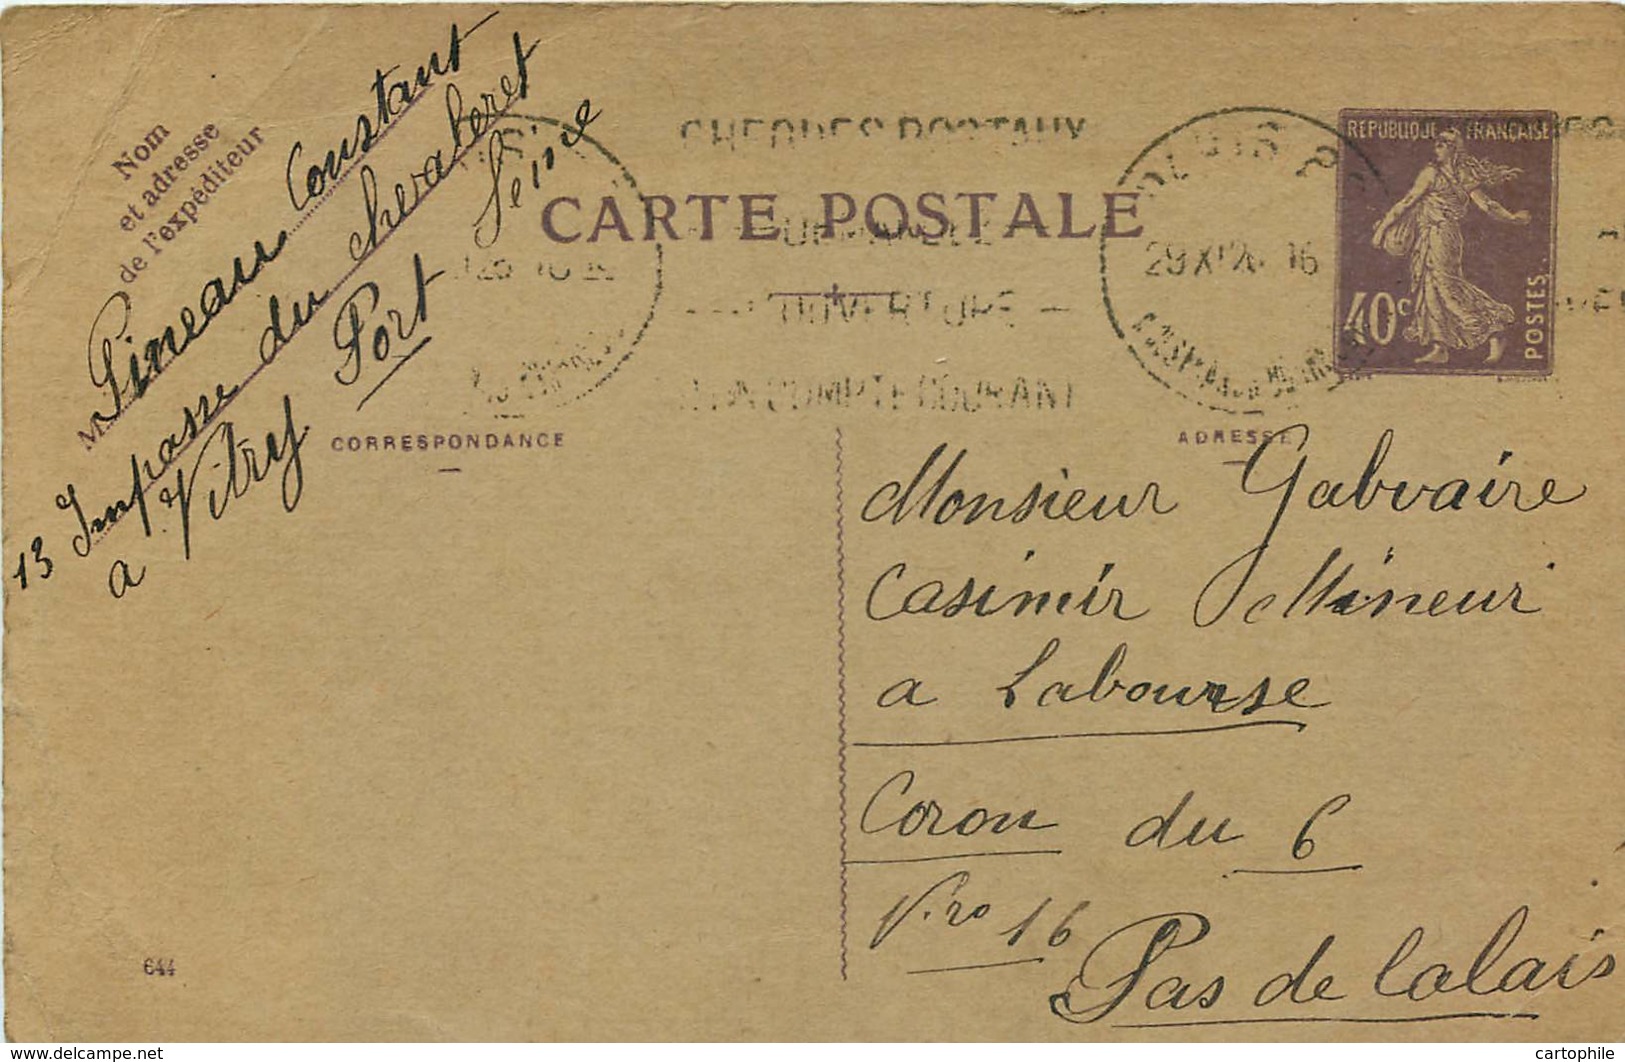 Nom
et adresse
de l'expéditeur
M Pineau Constant
13 Impasse du chevaleret
a Vitry Port Seine
CHEQUES POSTAUX
DEMANDEZ
L'OUVERTURE
COMPTE COURANT
CARTE POSTALE
PARIS
29 XI 16
REPUBLIQUE FRANÇAISE
40c
POSTES
CORRESPONDANCE
ADRESSE
Monsieur Gabvaire
Casimir Mineur
a Labourse
Coron du 6
Nro 16
Pas de Calais
644
www.delcampe.net
cartophile